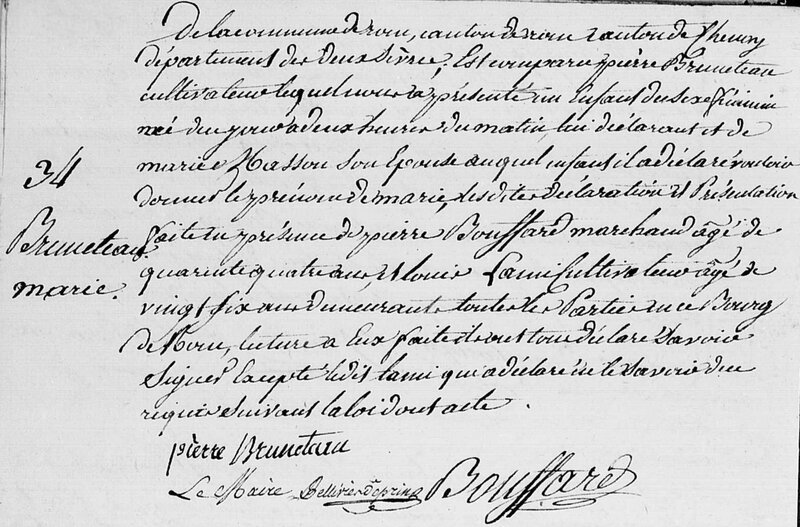 De la commune de rom, canton de rom canton de Chenay
département des deux Sèvres, Est comparu pierre Bruneteau
cultivateur lequel nous a présenté un Enfant du Sexe féminin
né du jour a deux heures du matin, lui déclarant et de
marie Masson Son Epouse auquel enfant il a déclaré vouloir
donner le prénom de marie, les dites déclaration et Présentation
34
faite en présence de pierre Bouffard marchand âgé de
Bruneteau
quarente quatre ans, et louis Lami Cultivateur âgé de
marie.
vingt six ans demeurants toutes les Parties en ce Bourg
de Rom, lecture a Eux faite ils ont tous déclaré Savoir
Signer Excepté ledit lami qui a déclaré ne le Savoir de ce
requis suivant la loi dont acte.
pierre Bruneteau
Le Maire Bouffard